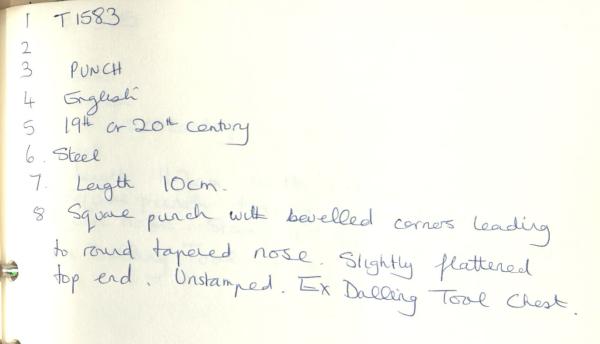 1 T1583
2
3 PUNCH
4 English
5 19th or 20th century
6. Steel
7. Length 10cm.
8 Square punch with bevelled corners leading
to round tapered nose. Slightly flattened
top end. Unstamped. Ex Dalling Tool Chest.